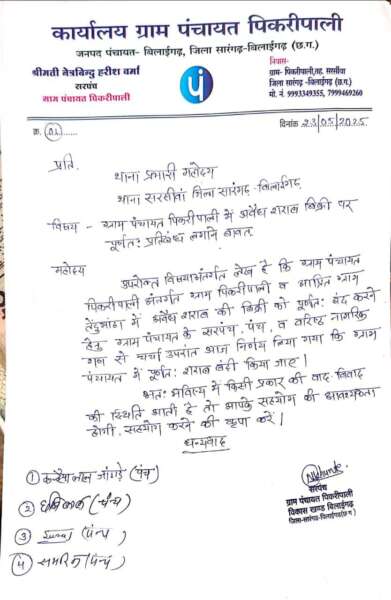 कार्यालय ग्राम पंचायत पिकरीपाली
जनपद पंचायत- बिलाईगढ़, जिला सारंगढ़-बिलाईगढ़ (छ.ग.)
श्रीमती नेत्रबिन्दु हरीश वर्मा
सरपंच
ग्राम पंचायत पिकरीपाली
निवास-
ग्राम- पिकरीपाली,तह. सरसीवा
जिला सारंगढ़ -बिलाईगढ़ (छ.ग.)
मो. नं. 9993349355, 7999469260
क्र. 01
दिनांक 23/05/2025
प्रति,
थाना प्रभारी महोदय
थाना सरसीवां जिला सारंगढ़-बिलाईगढ़
विषय - ग्राम पंचायत पिकरीपाली में अवैध शराब बिक्री पर
पूर्णतः प्रतिबंध लगाने बाबत्
महोदय
उपरोक्त विषयांतर्गत लेख है कि ग्राम पंचायत
पिकरीपाली अंतर्गत ग्राम पिकरीपाली व आश्रित ग्राम
तेंदुभांठा में अवैध शराब की बिक्री को पूर्णतः बंद करने
हेतु ग्राम पंचायत के सरपंच, पंच, व वरिष्ठ नागरिक
गण से चर्चा उपरांत आज निर्णय लिया गया कि ग्राम
पंचायत में पूर्णतः शराब बंदी किया जाए।
अतः भविष्य में किसी प्रकार की वाद-विवाद
की स्थिति आती है तो आपके सहयोग की आवश्यकता
होगी, सहयोग करने की कृपा करें।
धन्यवाद
① जांगड़े (पंच)
② (पंच)
③ (पंच)
④ (पंच)
सरपंच
ग्राम पंचायत पिकरीपाली
विकास खण्ड बिलाईगढ़
जिला-सारंगढ़-बिलाईगढ़(छ.ग.)